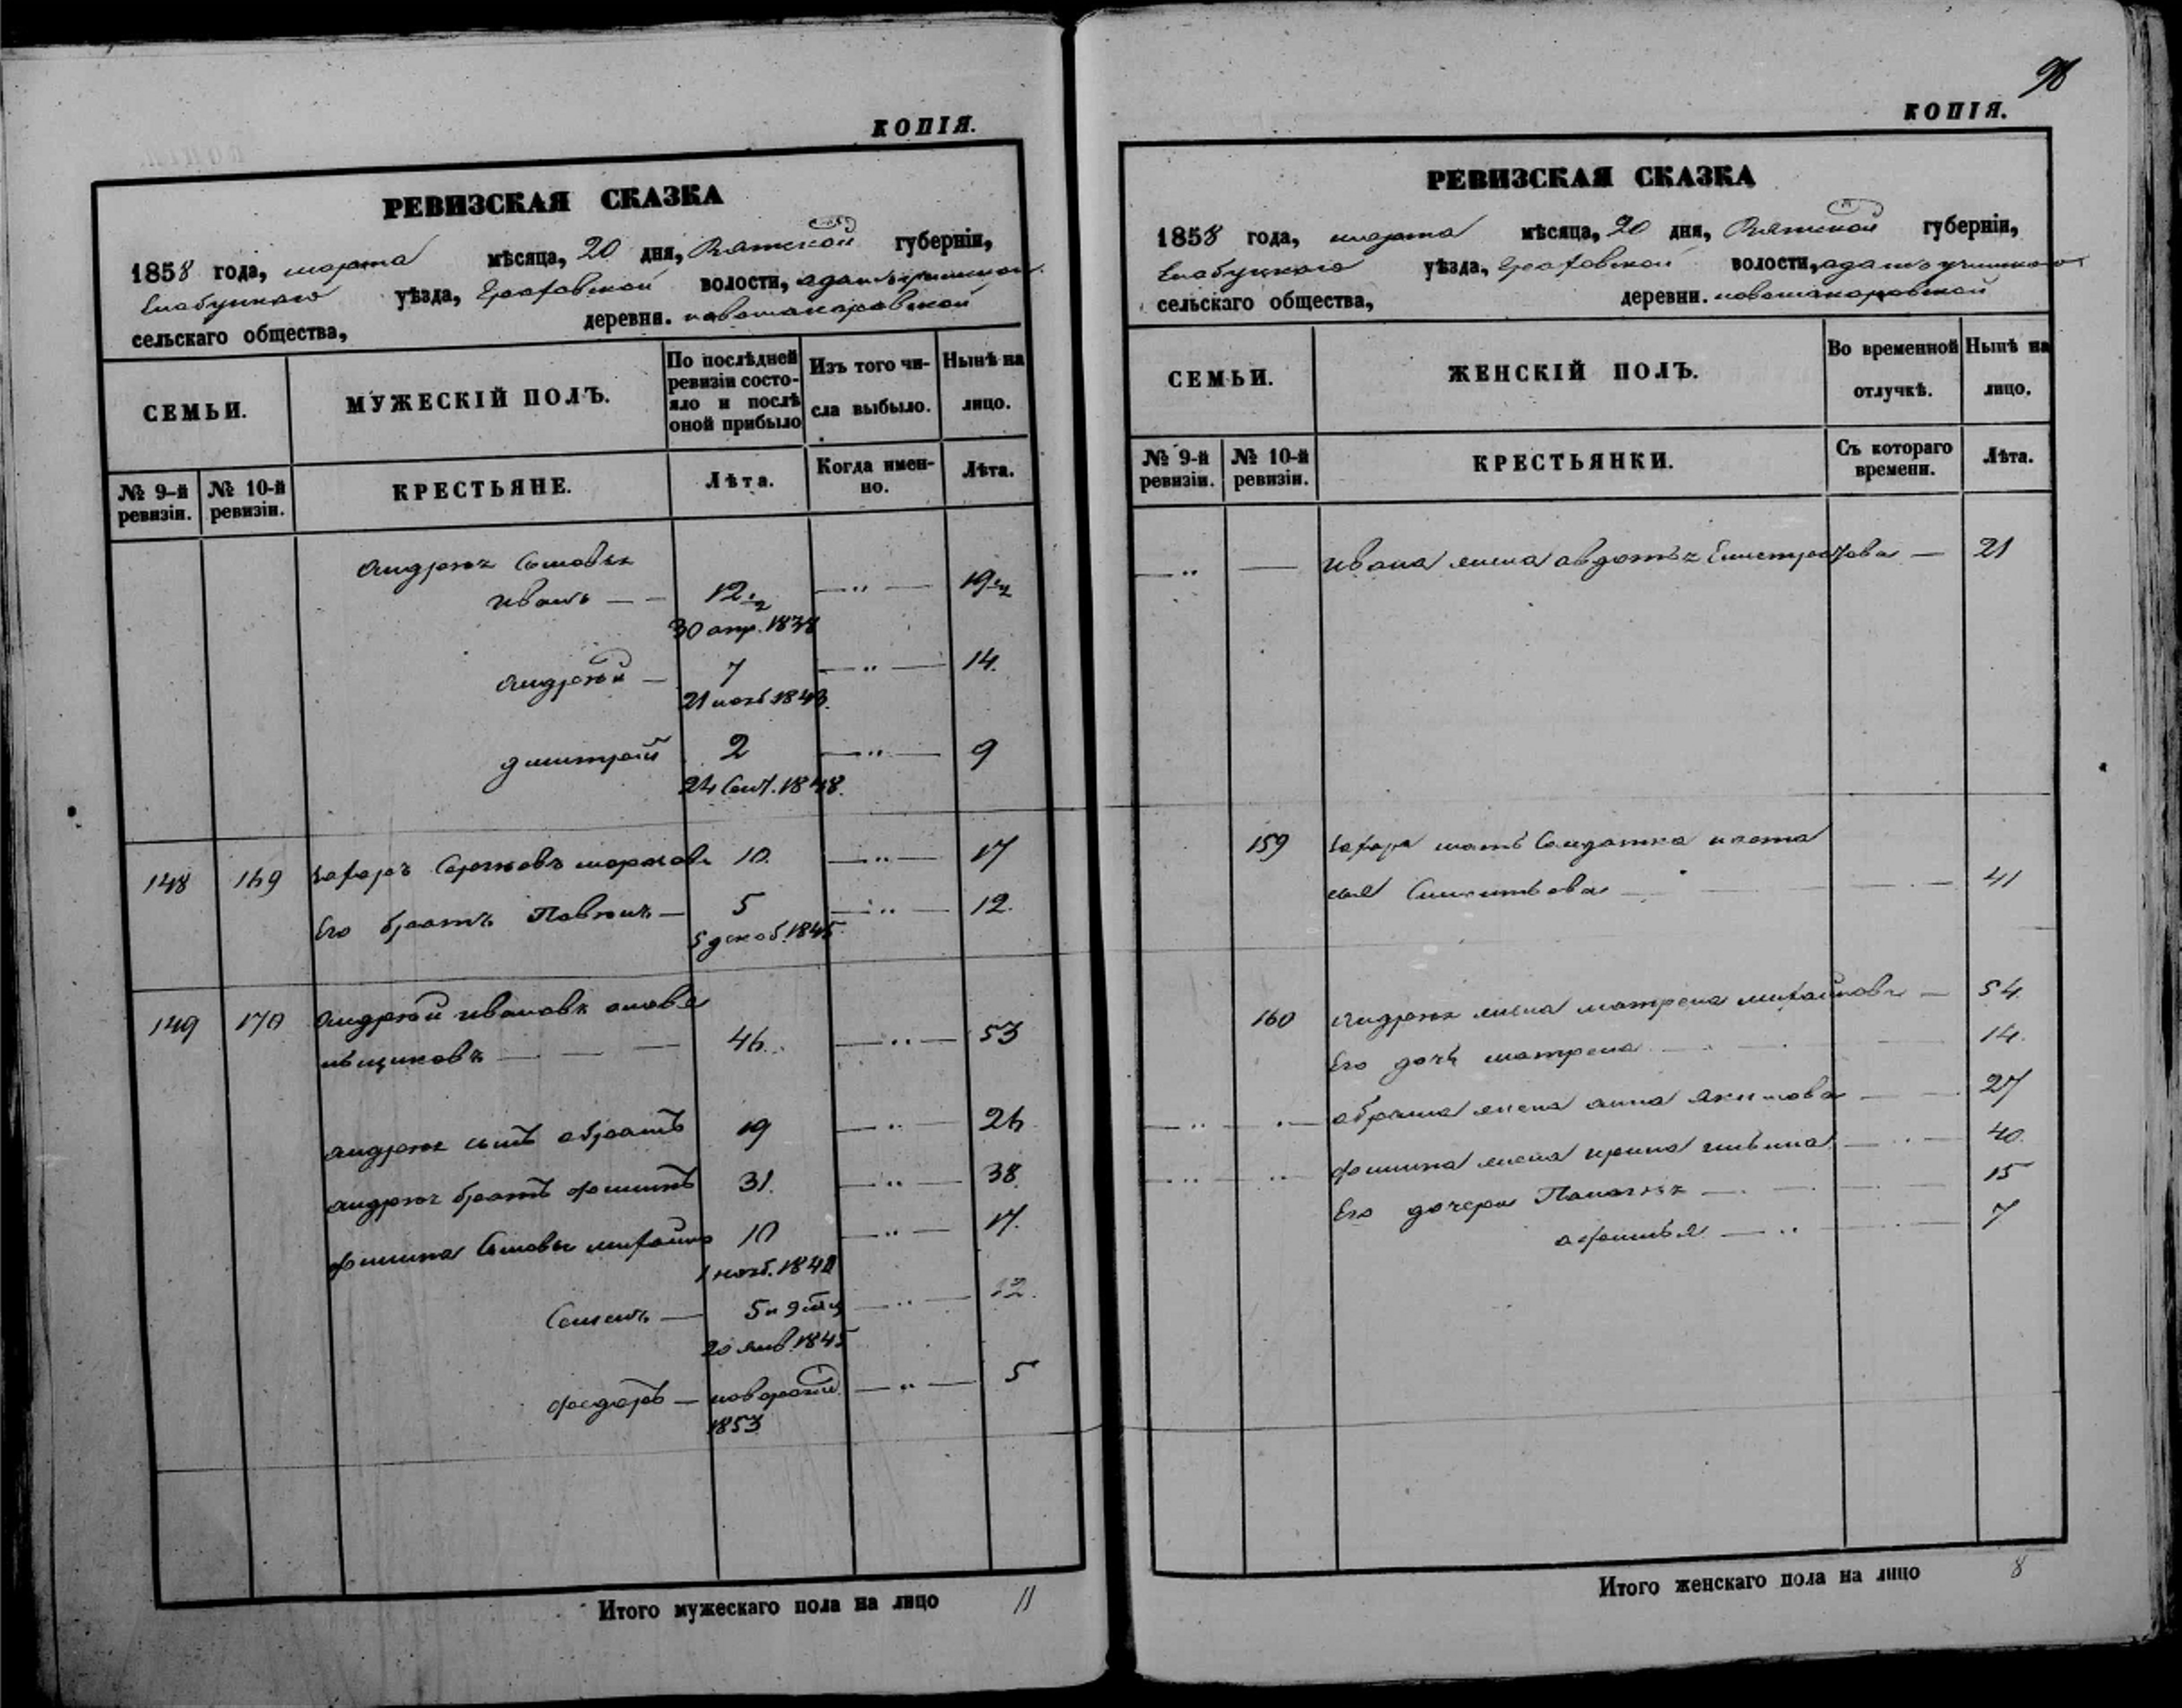 КОПІЯ.
РЕВИЗСКАЯ СКАЗКА
1858 года, марта мѣсяца, 20 дня, Вятской губерніи,
Елабужского уѣзда, Граховской волости,
сельскаго общества, деревни. новомакаровской
СЕМЬИ.
МУЖЕСКІЙ ПОЛЪ.
По послѣдней ревизіи состояло и послѣ оной прибыло
Изъ того числа выбыло.
Нынѣ на лицо.
№ 9-й ревизіи.
№ 10-й ревизіи.
КРЕСТЬЯНЕ.
Лѣта.
Когда именно.
Лѣта.
Андрея Сыновья
Иванъ — — 12 1/2 — " — 19 1/2
30 апр. 1838
Андрей — 7 — " — 14.
21 нояб 1843.
дмитрей 2 — " — 9
24 Сент. 1848.
148 169 Захаръ Сергѣевъ 10. — " — 17
Его братъ Павелъ — 5 — " — 12.
5 декаб. 1845
149 170 Андрей Ивановъ
46. — " — 53
Андрея сынъ абрамъ 19 — " — 26
Андрея братъ филипъ 31. — " — 38
филипа Сыновья михайло 10 — " — 17.
1 нояб. 1840
Семенъ — 5 и 9 мц — " — 12.
20 янв. 1845
федоръ — новорожд. — " — 5
1853
Итого мужескаго пола на лицо 11
98
КОПІЯ.
РЕВИЗСКАЯ СКАЗКА
1858 года, марта мѣсяца, 20 дня, Вятской губерніи,
Елабужского уѣзда, Граховской волости,
сельскаго общества, деревни. новомакаровской
СЕМЬИ.
ЖЕНСКІЙ ПОЛЪ.
Во временной отлучкѣ.
Нынѣ на лицо.
№ 9-й ревизіи.
№ 10-й ревизіи.
КРЕСТЬЯНКИ.
Съ котораго времени.
Лѣта.
— " — Ивана жена авдотья Елистратова — 21
159 Захара мать Солдатка наста
сья 41
160 Андрея жена матрена михайлова — 54.
Его дочь матрена 14.
— " — " — абрама жена анна Якимова — 27
— " — " — филипа жена ирина — " — 40.
Его дочери Пелагея — 15
афимья — " — 7
Итого женскаго пола на лицо 8